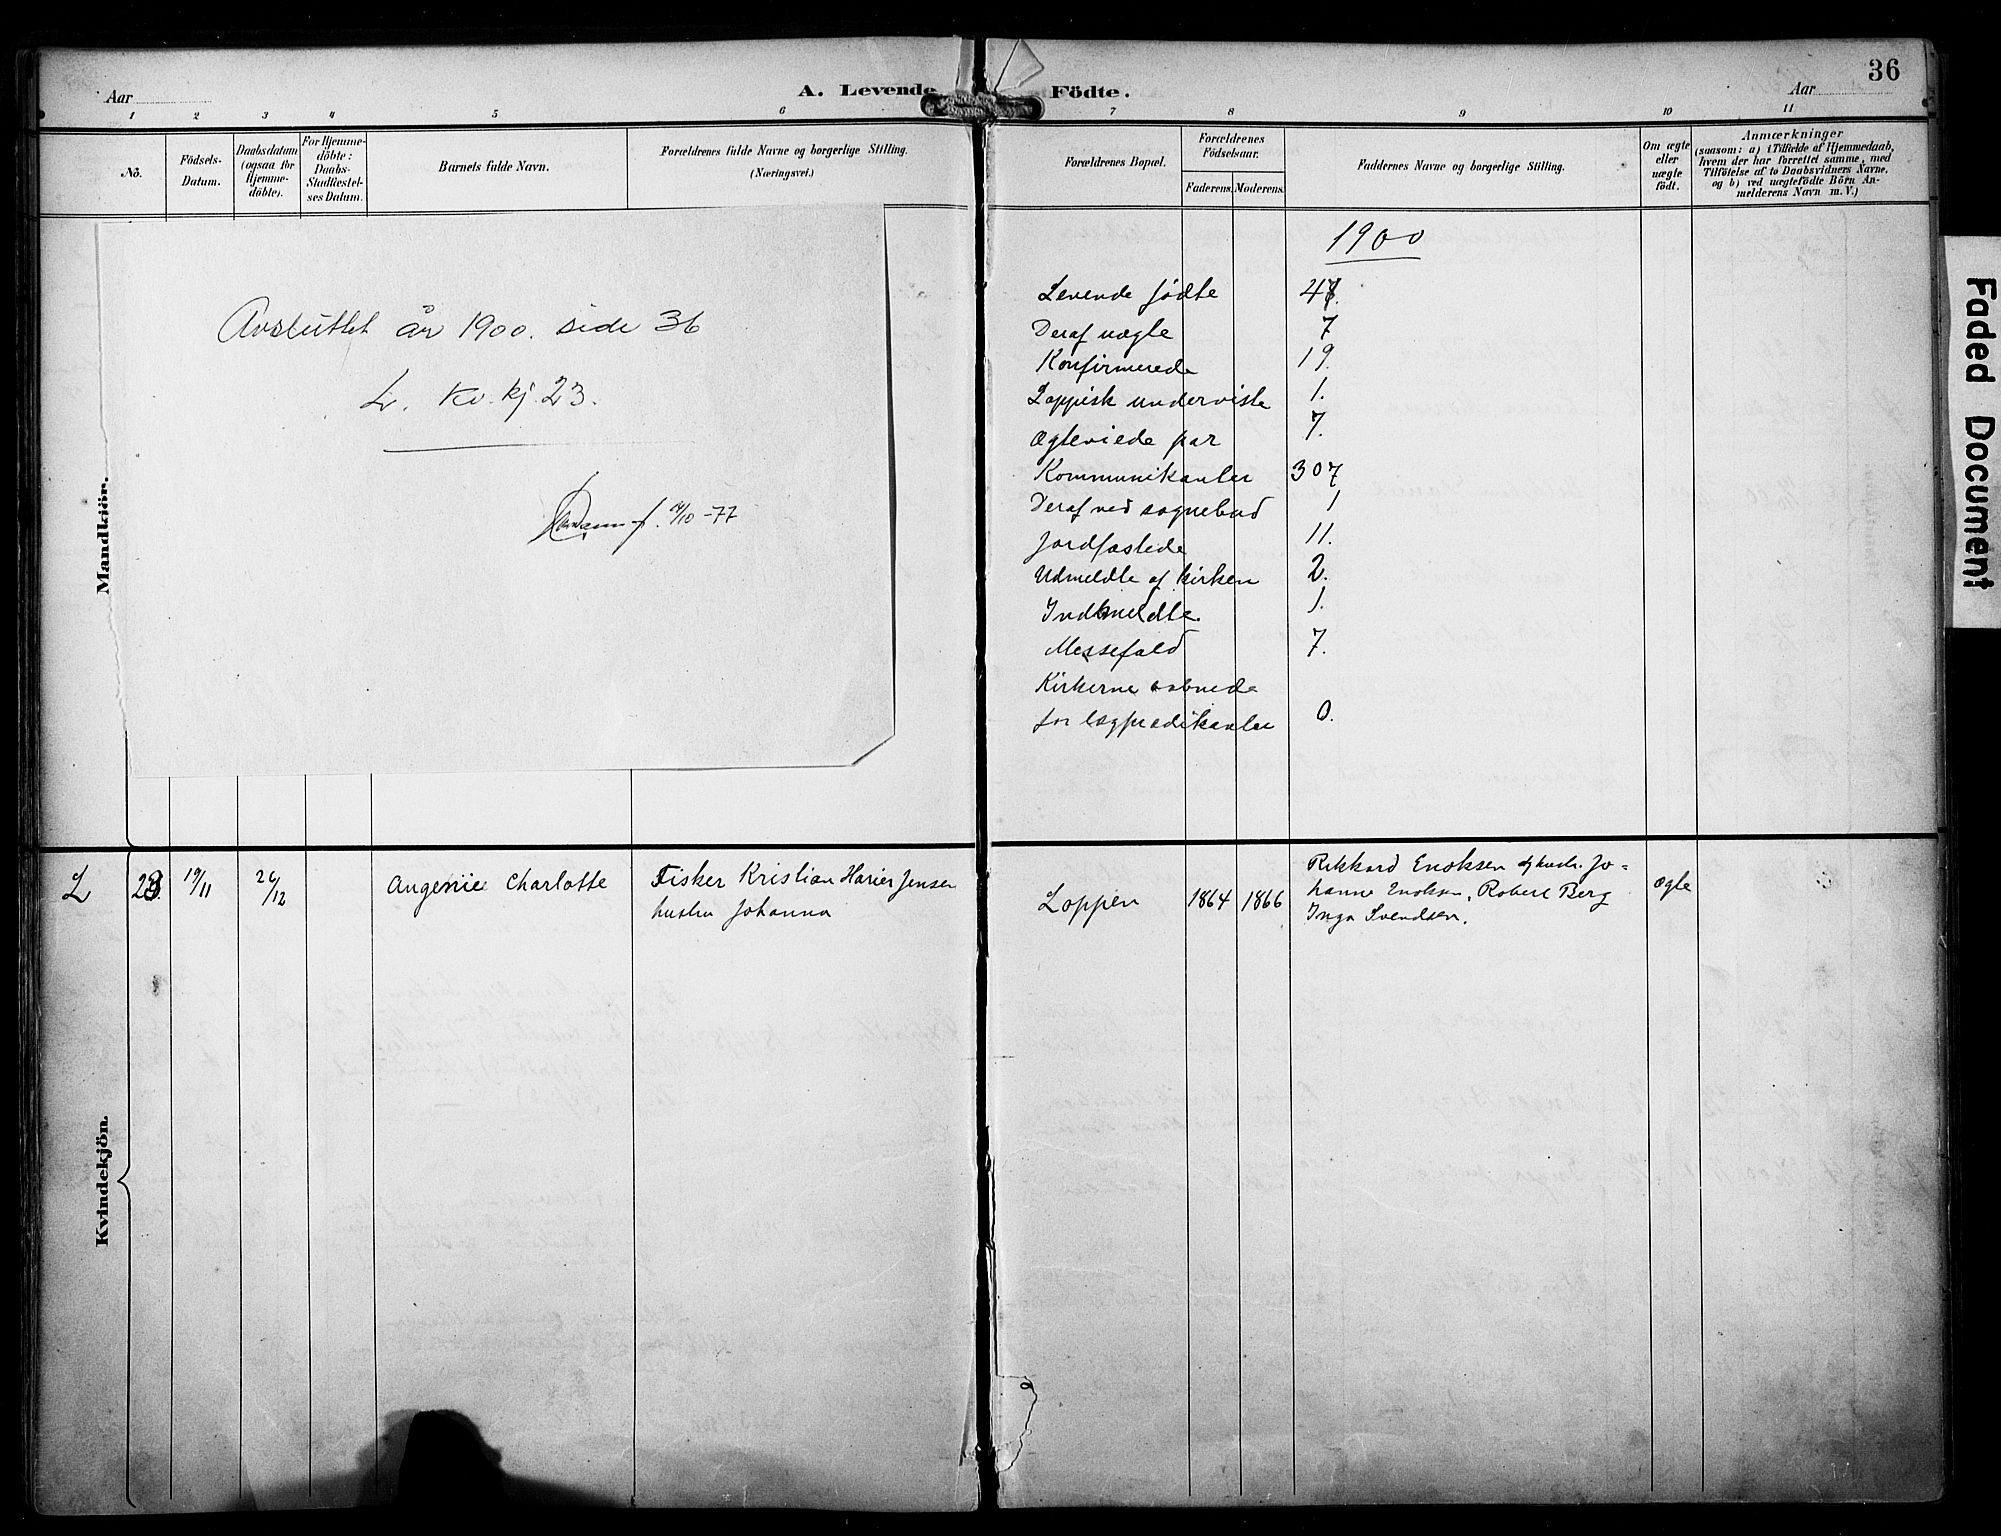 36
Aar
A. Levende Födte.
Aar
1 2 3 4 5 6 7 8 9 10 11
No.
Födsels-
Datum.
Daabsdatum
(ogsaa for
Hjemme-
döbte).
For Hjemme-
döbte:
Daabs-
Stadfæstel-
ses Datum.
Barnets fulde Navn.
Forældrenes fulde Navne og borgerlige Stilling.
(Næringsvei.)
Forældrenes Bopæl.
Forældrenes
Födselsaar.
Faderens. Moderens.
Faddernes Navne og borgerlige Stilling.
Om ægte
eller
uægte
födt.
Anmærkninger
(saasom: a) i Tilfælde af Hjemmedaab,
hvem der har forrettet samme, med
Tilföielse af to Daabsvidners Navne,
og b) ved uægtefödte Börn An-
melderens Navn m. V.)
Mandkjön.
Avsluttet år 1900. side 36
L. kv. kj. 23.
/10 -77
1900
Levende fødte 47.
Deraf uægte 7
Konfirmerede 19.
Lappisk underviste 1.
Ægteviede par 7.
Kommunikanter 307
Deraf ved sognebud 1
Jordfæstede 11.
Udmeldte af kirken 2.
Indmeldte 1.
Messefald 7.
Kirkerne aabnede
for lægprædikanter 0.
Kvindekjön.
L 23. 19/11 26/12 Angenie Charlotte Fisker Kristian Harier Jensen
hustru Johanna
Loppen 1864 1866
Rikkard Enoksen og hustr. Jo=
hanne Enoksen, Robert Berg
Inga Svendsen.
Ægte
Faded Document